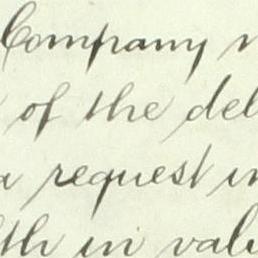 Company
of the del
request in
th in valu